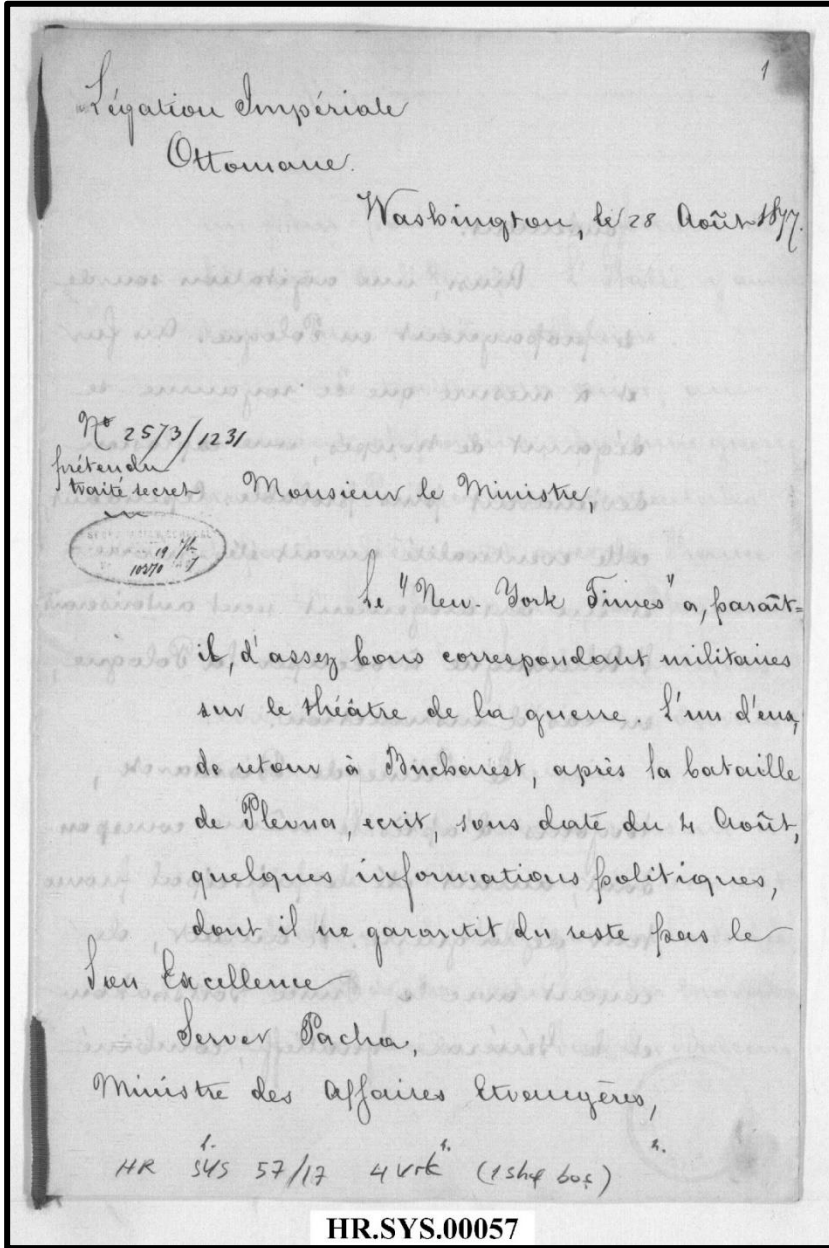 1
Légation Impériale
Ottomane.
Washington, le 28 Août 1877.
No 2573/1231
prétendu
traité secret
Monsieur le Ministre,
19
10370
Le "New-York Times" a, paraît=
il, d'assez bons correspondant militaires
sur le théâtre de la guerre. L'un d'eux,
de retour à Bucharest, après la bataille
de Plevna, ecrit, sous date du 4 Août,
quelques informations politiques,
dont il ne garantit du reste pas le
Son Excellence
Server Pacha,
Ministre des Affaires Etrangères,
HR SYS 57/17 4 vrk (1 shf boş)
HR.SYS.00057